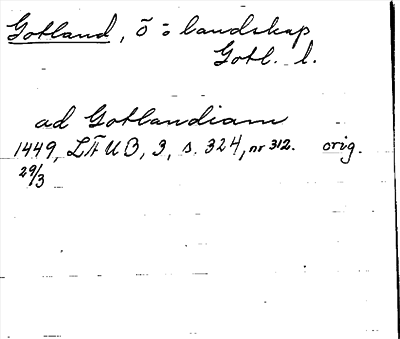 Gotland, ö o landskap
Gotl. l.
ad Gotlandiam
1449, LÄUB, 3, s. 324, nr 312. orig.
29/3